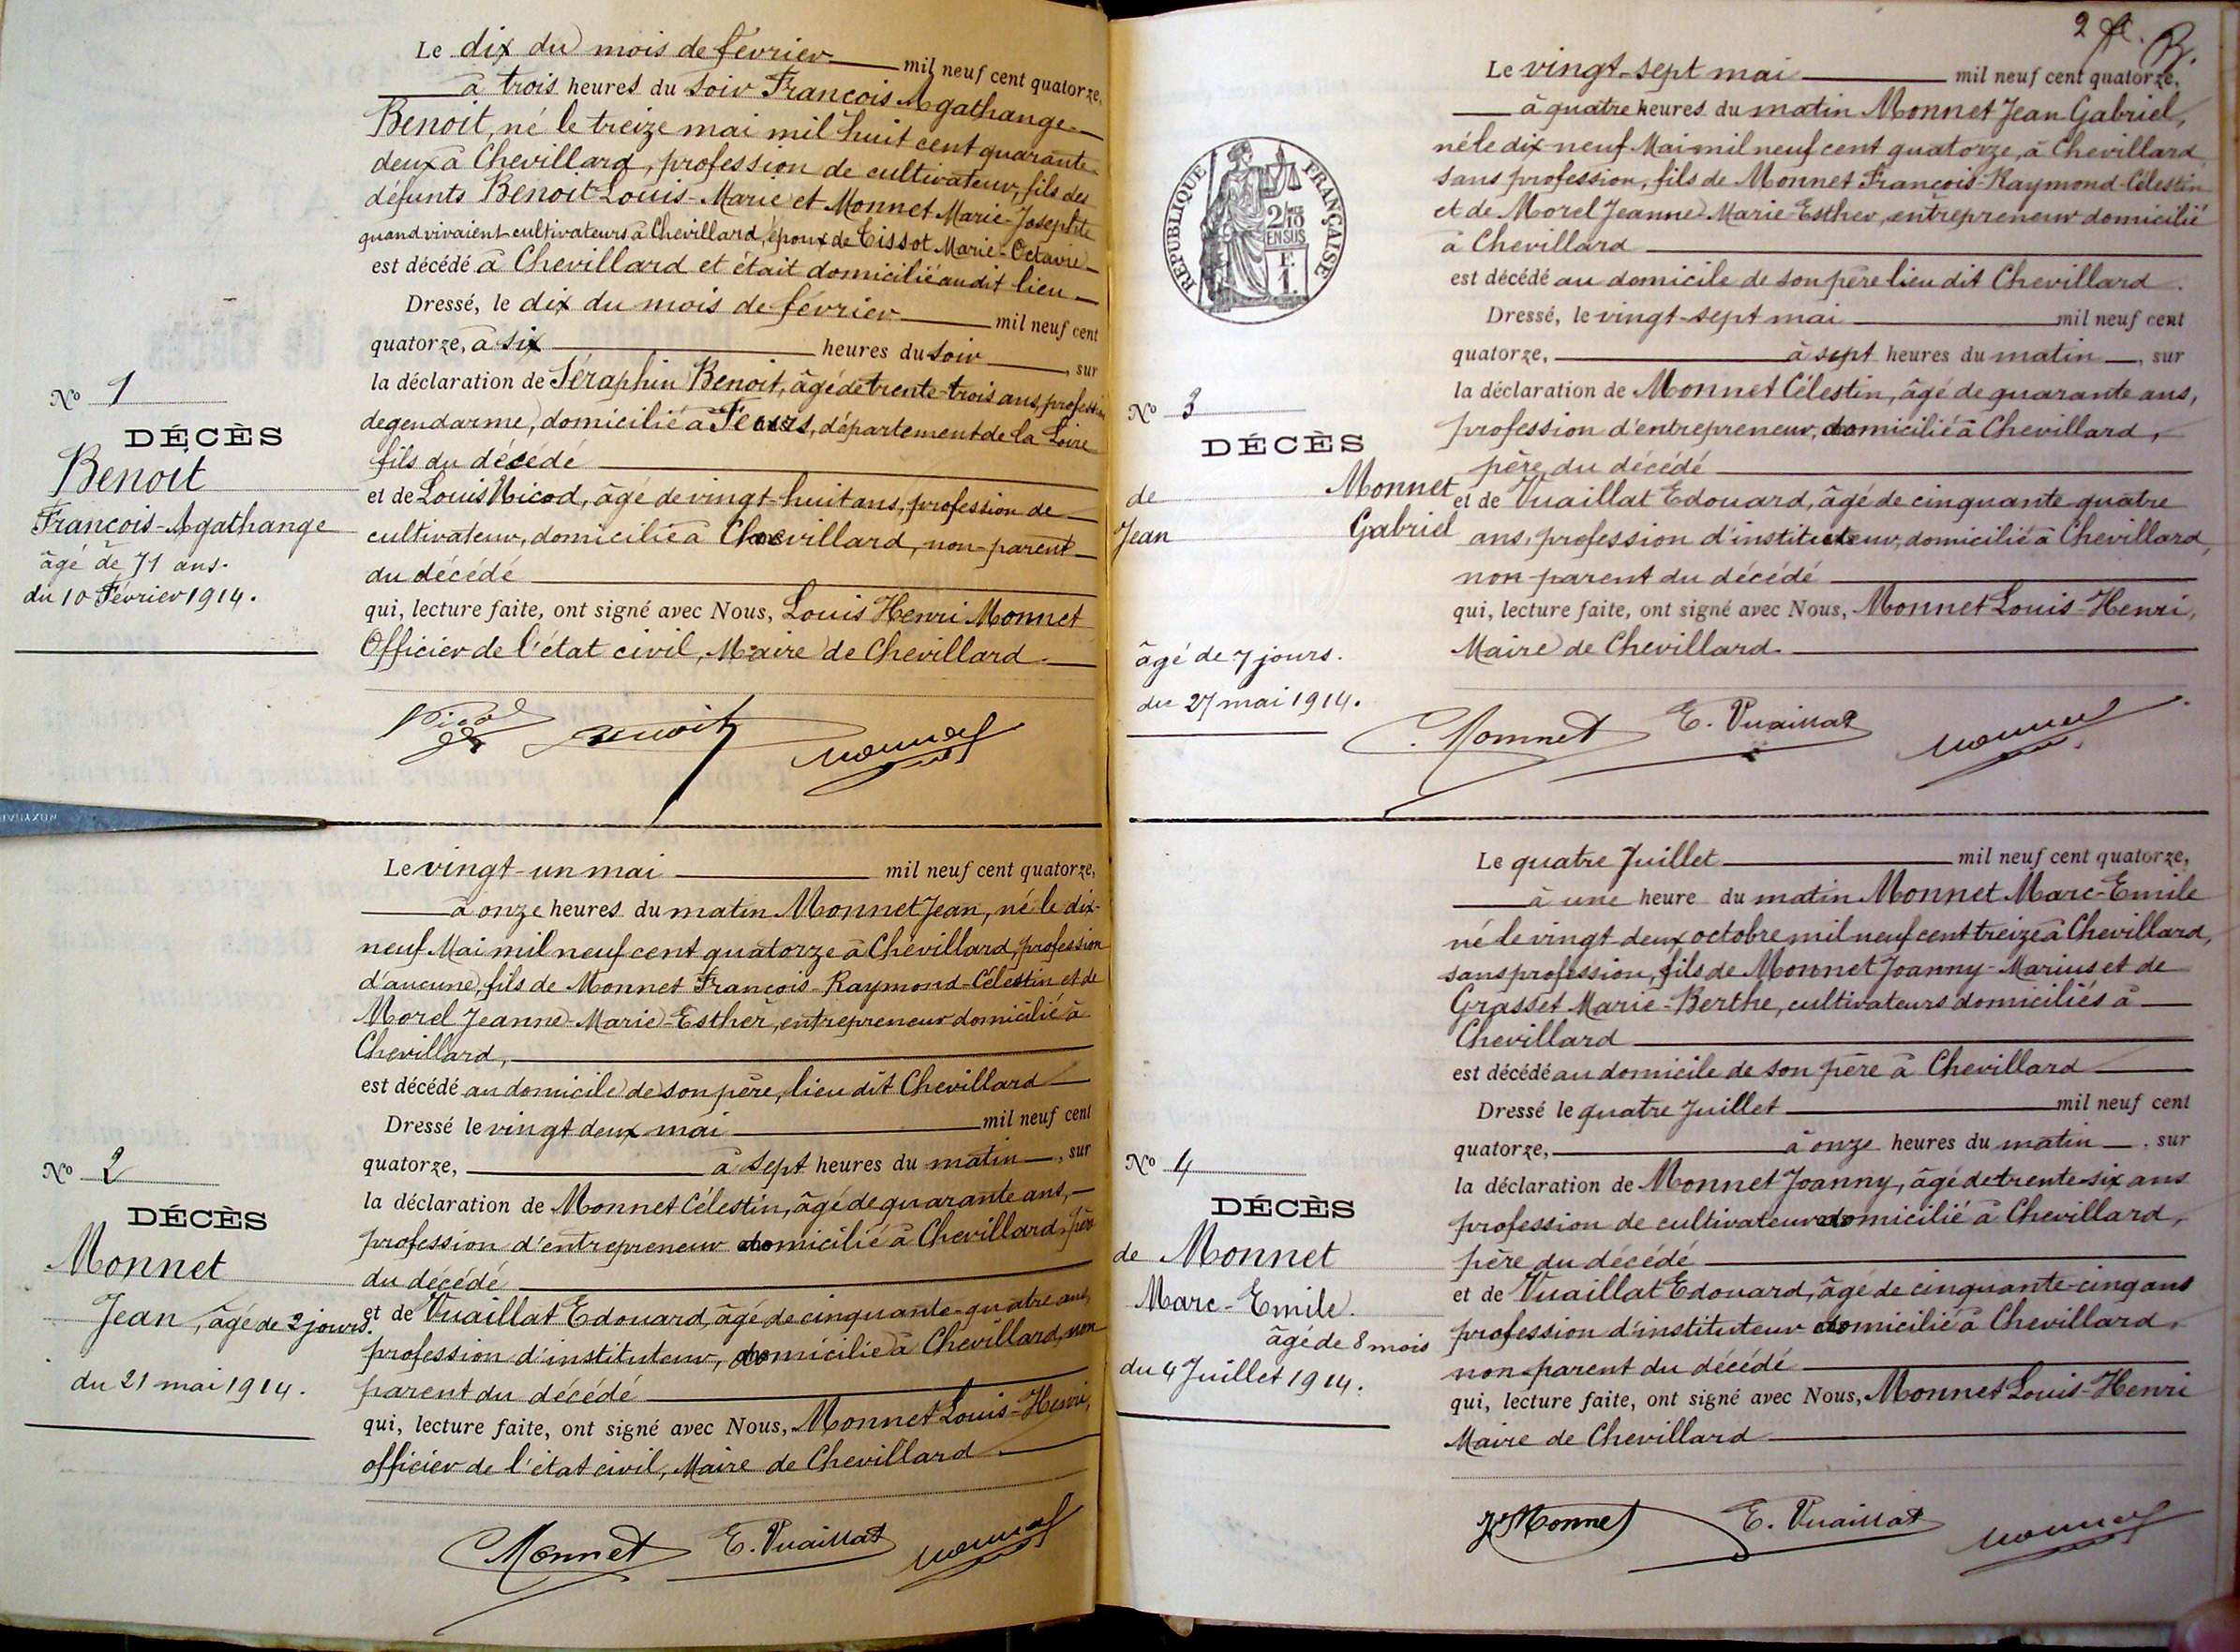 Le dix du mois de février mil neuf cent quatorze,
à trois heures du soir François Agathange
Benoit, né le treize mai mil huit cent quarante
deux à Chevillard, profession de cultivateur, fils des
défunts Benoit Louis-Marie et Monnet Marie-Josephte
quand vivaient cultivateurs à Chevillard, époux de Tissot Marie-Octavie
est décédé à Chevillard et était domicilié audit lieu
Dressé, le dix du mois de février mil neuf cent
quatorze, à six heures du soir, sur
la déclaration de Séraphin Benoit, âgé de trente-trois ans, profession
de gendarme, domicilié à Feurs, département de la Loire
fils du décédé
et de Louis Nicod, âgé de vingt-huit ans, profession de
cultivateur, domicilié à Chevillard, non-parent
du décédé
qui, lecture faite, ont signé avec Nous, Louis Henri Monnet
Officier de l'état civil, Maire de Chevillard.
Nº 1
DÉCÈS
Benoit
François-Agathange
âgé de 71 ans.
du 10 Février 1914.
Nicod Benoit Monnet
Le vingt-un mai mil neuf cent quatorze,
à onze heures du matin Monnet Jean, né le dix-
neuf Mai mil neuf cent quatorze à Chevillard, profession
d'aucune, fils de Monnet François-Raymond-Célestin et de
Morel Jeanne-Marie-Esther, entrepreneur domicilié à
Chevillard,
est décédé au domicile de son père, lieu dit Chevillard
Dressé le vingt deux mai mil neuf cent
quatorze, à sept heures du matin, sur
la déclaration de Monnet Célestin, âgé de quarante ans,
profession d'entrepreneur domicilié à Chevillard, père
du décédé
et de Vuaillat Edouard, âgé de cinquante-quatre ans,
profession d'instituteur, domicilié à Chevillard, non
parent du décédé
qui, lecture faite, ont signé avec Nous, Monnet Louis-Henri,
officier de l'état civil, Maire de Chevillard
Nº 2
DÉCÈS
Monnet
Jean, âgé de 2 jours.
du 21 mai 1914.
C Monnet E. Vuaillat Monnet
2
Le vingt-sept mai mil neuf cent quatorze,
à quatre heures du matin Monnet Jean Gabriel,
né le dix-neuf Mai mil neuf cent quatorze, à Chevillard,
sans profession, fils de Monnet François-Raymond-Célestin
et de Morel Jeanne Marie-Esther, entrepreneur domicilié
à Chevillard
est décédé au domicile de son père lieu dit Chevillard.
Dressé, le vingt-sept mai mil neuf cent
quatorze, à sept heures du matin, sur
la déclaration de Monnet Célestin, âgé de quarante ans,
profession d'entrepreneur, domicilié à Chevillard,
père du décédé
et de Vuaillat Edouard, âgé de cinquante-quatre
ans, profession d'instituteur, domicilié à Chevillard,
non-parent du décédé
qui, lecture faite, ont signé avec Nous, Monnet Louis-Henri,
Maire de Chevillard.
RÉPUBLIQUE FRANÇAISE
2/10
EN SUS
F.
1.
Nº 3
DÉCÈS
de Monnet
Jean Gabriel
âgé de 7 jours.
du 27 mai 1914.
C. Monnet E. Vuaillat Monnet
Le quatre Juillet mil neuf cent quatorze,
à une heure du matin Monnet Marc-Emile
né le vingt deux octobre mil neuf cent treize à Chevillard,
sans profession, fils de Monnet Joanny-Marius et de
Grasset Marie-Berthe, cultivateurs domiciliés à
Chevillard
est décédé au domicile de son père à Chevillard
Dressé le quatre Juillet mil neuf cent
quatorze, à onze heures du matin, sur
la déclaration de Monnet Joanny, âgé de trente-six ans
profession de cultivateur domicilié à Chevillard,
père du décédé
et de Vuaillat Edouard, âgé de cinquante-cinq ans
profession d'instituteur domicilié à Chevillard,
non-parent du décédé
qui, lecture faite, ont signé avec Nous, Monnet Louis-Henri
Maire de Chevillard
Nº 4
DÉCÈS
de Monnet
Marc-Emile.
âgé de 8 mois
du 4 Juillet 1914.
J. Monnet E. Vuaillat Monnet